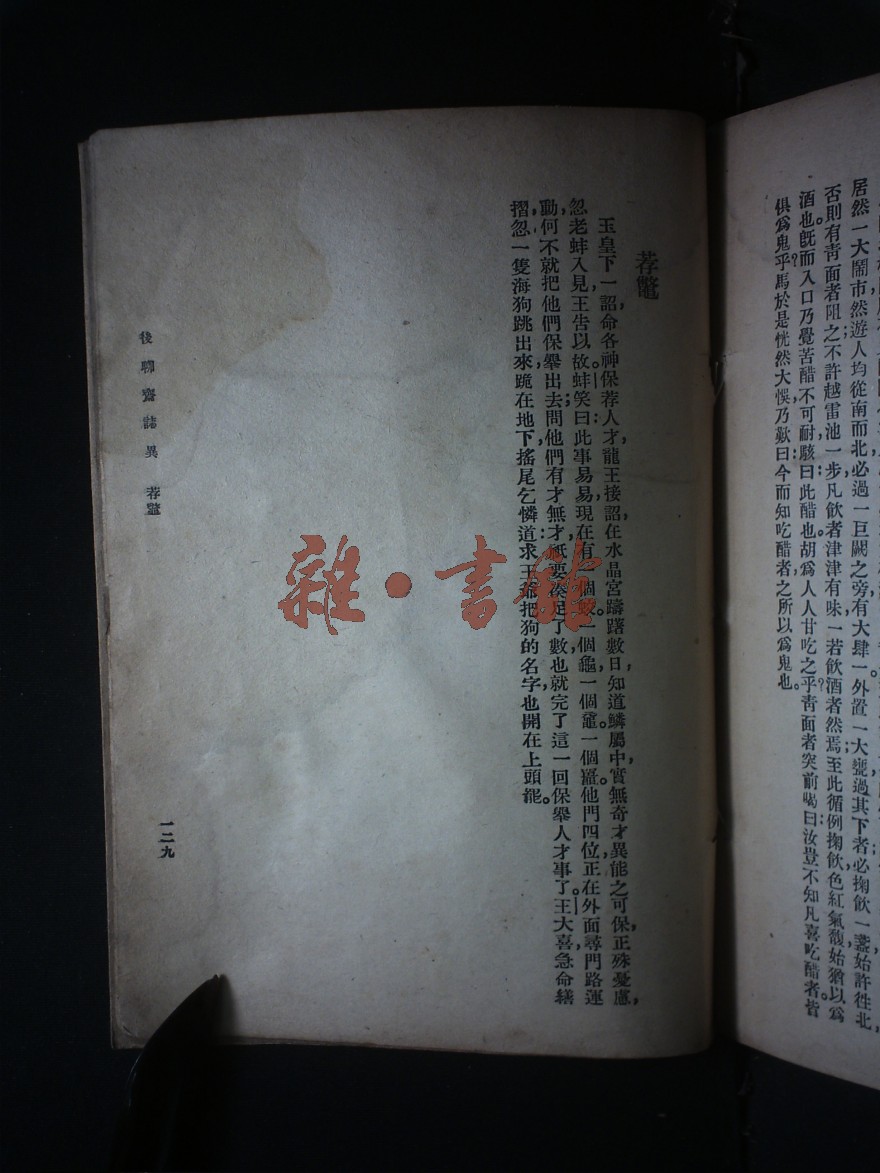 居然一大鬧市然遊人均從南而北必過一巨闕之旁有大肆一外置一大甕過其下者必掬飲一盞始許往北，
否則有靑面者阻之不許越雷池一步凡飲者津津有味一若飲酒者然焉至此循例掬飲色紅氣馥始猶以爲
酒也。旣而入口乃覺苦醋不可耐駭曰此醋也胡爲人人甘吃之乎？靑面者突前喝曰汝豈不知凡喜吃醋者皆
俱爲鬼乎？馬於是恍然大悞乃歎曰今而知吃醋者之所以爲鬼也。
荐鼈
玉皇下一詔，命各神保荐人才，龍王接詔，在水晶宮躊躇數日，知道鱗屬中，實無奇才異能之可保，正殊憂慮，
忽老蚌入見，王告以故。蚌笑曰：此事易易，現在有一個一個龜，一個鼋一個鼉。他門四位，正在外面尋門路運
動，何不就把他們保舉出去；問他們有才無才，祇要湊足了數，也就完了這一回保舉人才事了。王大喜，急命繕
摺，忽一隻海狗跳出來，跪在地下，搖尾乞憐道：求王爺把狗的名字，也開在上頭罷。
後聊齋誌異 荐鼈
一二九
雜·書館